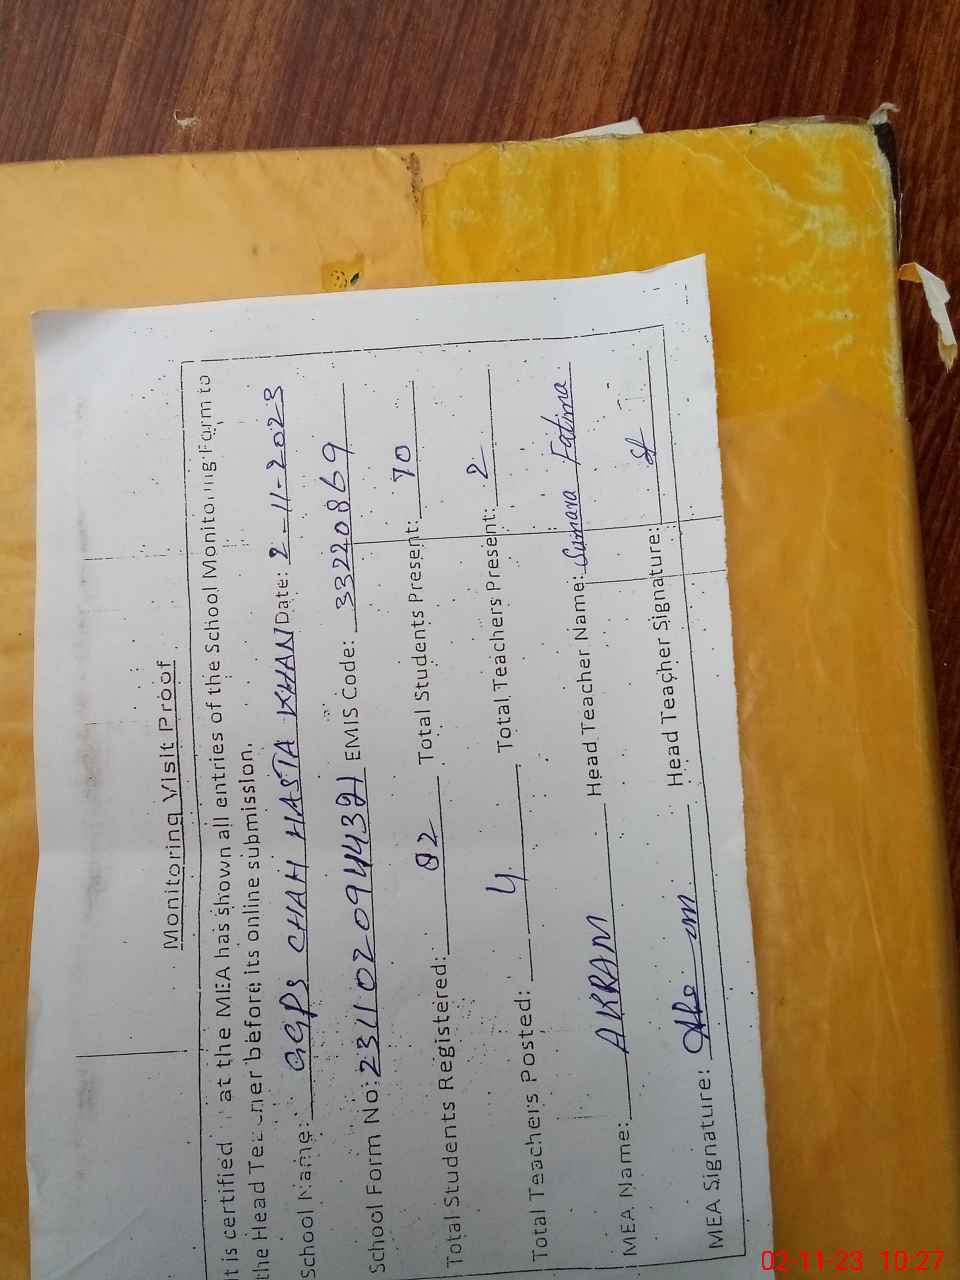 Monitoring Visit Proof
It is certified at the MEA has shown all entries of the School Monitoring Form to
the Head Teacher before its online submission.
School Name: GGPS CHAH HASTA KHAN Date: 2-11-2023
School Form No: EMIS Code: 33220869
Total Students Registered: 82 Total Students Present: 70
Total Teachers Posted: 4 Total Teachers Present: 2
MEA Name: AKRAM Head Teacher Name: Sumara Fatima
MEA Signature: Head Teacher Signature:
02-11-23 10:27